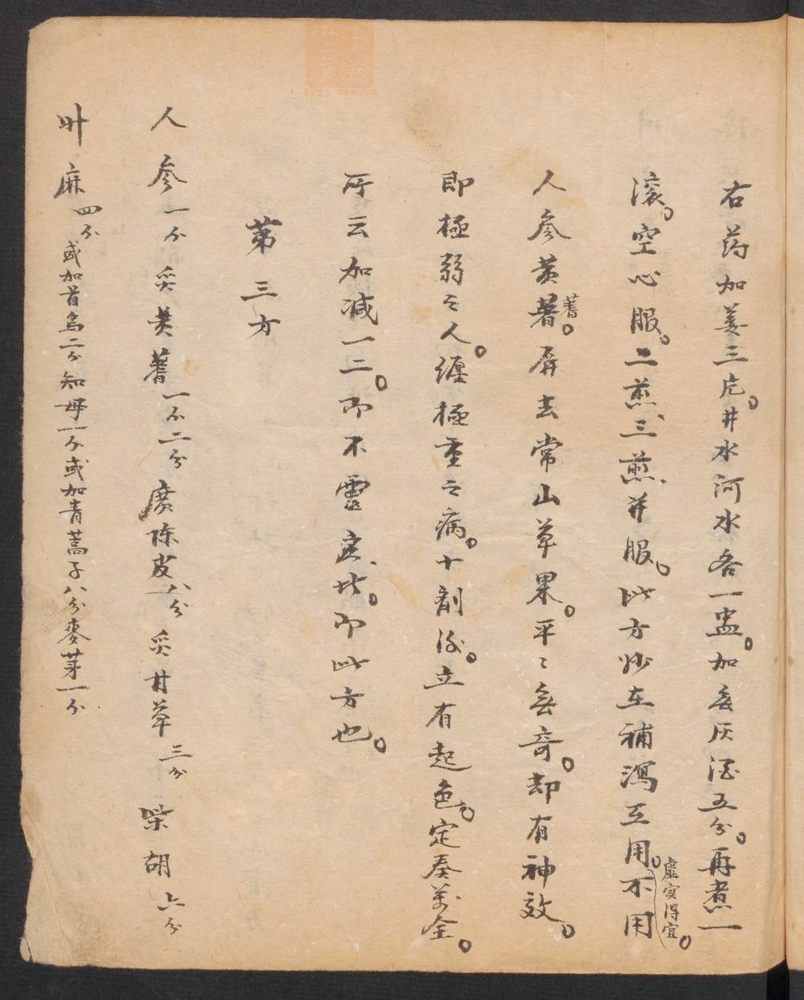 右药加姜三片。井水河水各一盅。加无灰酒五分。再煮一
滚。空心服。二煎、三煎、并服。此方妙在补泻互用。虚实得宜。不用
人参黄蓍。屏去常山草果。平〻无奇。却有神效。
即极弱之人。缠极重之病。十剂后。立有起色。定奏万全。
所云加减一二。即不灵应者。即此方也。
第三方
人参一钱 炙黄蓍一钱二分 广陈皮八分 炙甘草三分 柴胡六分
升麻四分 或加首乌二钱知母一钱或加青蒿子八分麦芽一钱